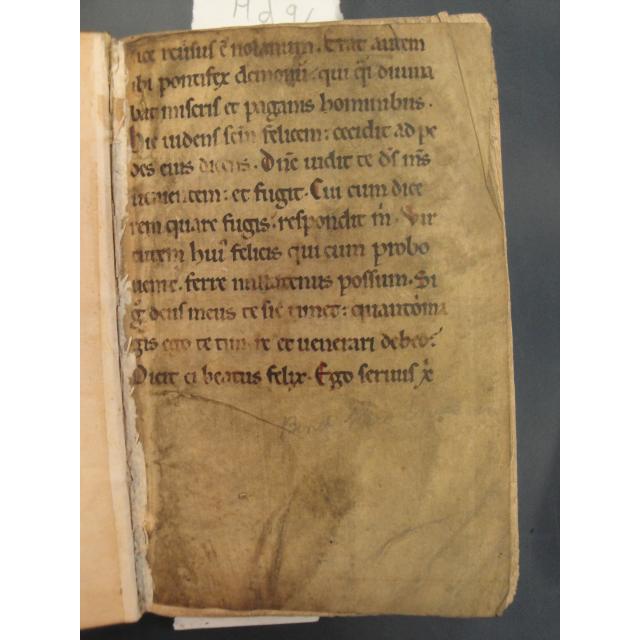 M d 9
ice reusus ē nolanum. Erat autem
ibi pontifex demonū. qui q̄i diuina
bat miseris et paganis hominibus.
Hic uidens scm̄ felicem: cecidit ad pe
des eius dicens. Dn̄e uidit te ds̄ ms̄
uenientem: et fugit. Cui cum dice
rem quare fugis. respondit m̄. Vir
tutem hui᷒ felicis qui cum probo
uenit. ferre nullatenus possum. Si
g̊ deus meus te sic timet: quantoma
gis ego te timere et uenerari debeo?
Dicit ei beatus felix. Ego seruus x̄